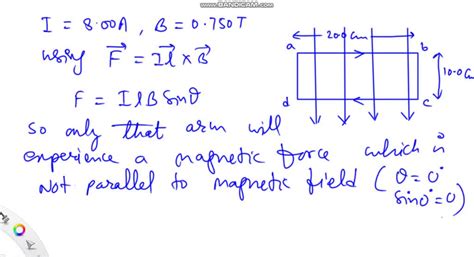 WWW.BANDICAM.COM
I = 8.00A, B = 0.750T
using F⃗ = I l⃗ × B⃗
F = I l B Sinθ
20.0 cm
a b
10.0 cm
d c
So only that arm will
experience a magnetic force which is
not parallel to magnetic field (θ = 0°
sin0° = 0)